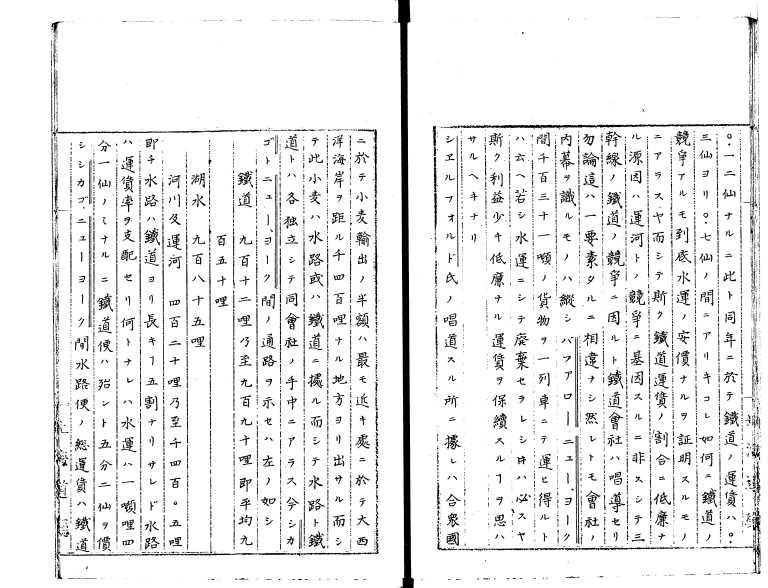 〇・一二仙ナルニ此ト同年ニ於テ鐵道ノ運賃ハ〇・
三仙ヨリ〇・七仙ノ間ニアリキコレ如何ニ鐵道ノ
競爭アルモ到底水運ノ安價ナルヲ証明スルモノ
ニアラスヤ而シテ斯ク鐵道運賃ノ割合ニ低廉ナ
ル源因ハ運河トノ競爭ニ基因スルニ非スシテ三
幹線ノ鐵道ノ競爭ニ因ルト鐵道會社ハ唱導セリ
勿論這ハ一要素タルニ相違ナシ然レトモ會社ノ
内幕ヲ識ルモノハ縱シバファローニューヨーク
間千百三十一噸ノ貨物ヲ一列車ニテ運ヒ得ルト
ハ云ヘ若シ水運ニシテ廃棄セラレシ時ハ必スヤ
斯ク利益少キ低廉ナル運賃ヲ保續スルヿヲ思ハ
サルヘキナリ
シエルフォルド氏ノ唱道スル所ニ據レハ合衆國
ニ於テ小麦輸出ノ半額ハ最モ近キ處ニ於テ大西
洋海岸ヲ距ル千四百哩ナル地方ヨリ出サル而シ
テ此小麦ハ水路或ハ鐵道ニ據ル而シテ水路ト鐵
道トハ各独立シテ同會社ノ手中ニアラス今シカ
ゴトニューヨーク間ノ通路ヲ示セハ左ノ如シ
鐵道 九百十二哩乃至九百九十哩即平均九
百五十哩
湖水 九百八十五哩
河川及運河 四百二十哩乃至千四百〇五哩
即チ水路ハ鐵道ヨリ長キヿ五割ナリサレド水路
ハ運賃率ヲ支配セリ何トナレハ水運ハ一噸哩四
分一仙ノミナルニ鐵道便ハ殆ント五分二仙ヲ價
シシカゴニューヨーク間水路便ノ総運賃ハ鐵道